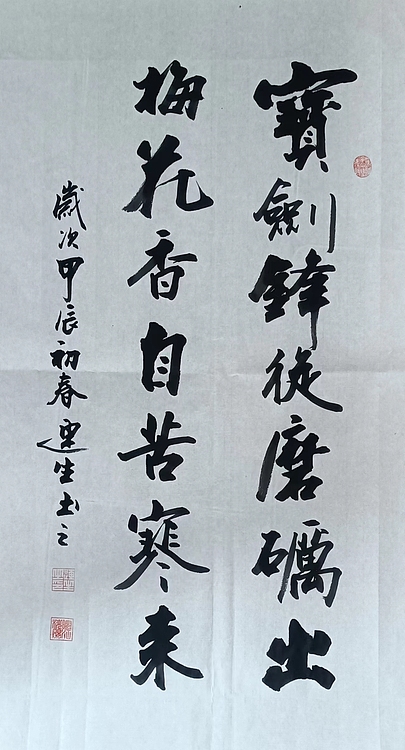 寶劍鋒從磨礪出
梅花香自苦寒來
歲次甲辰初春運生书之